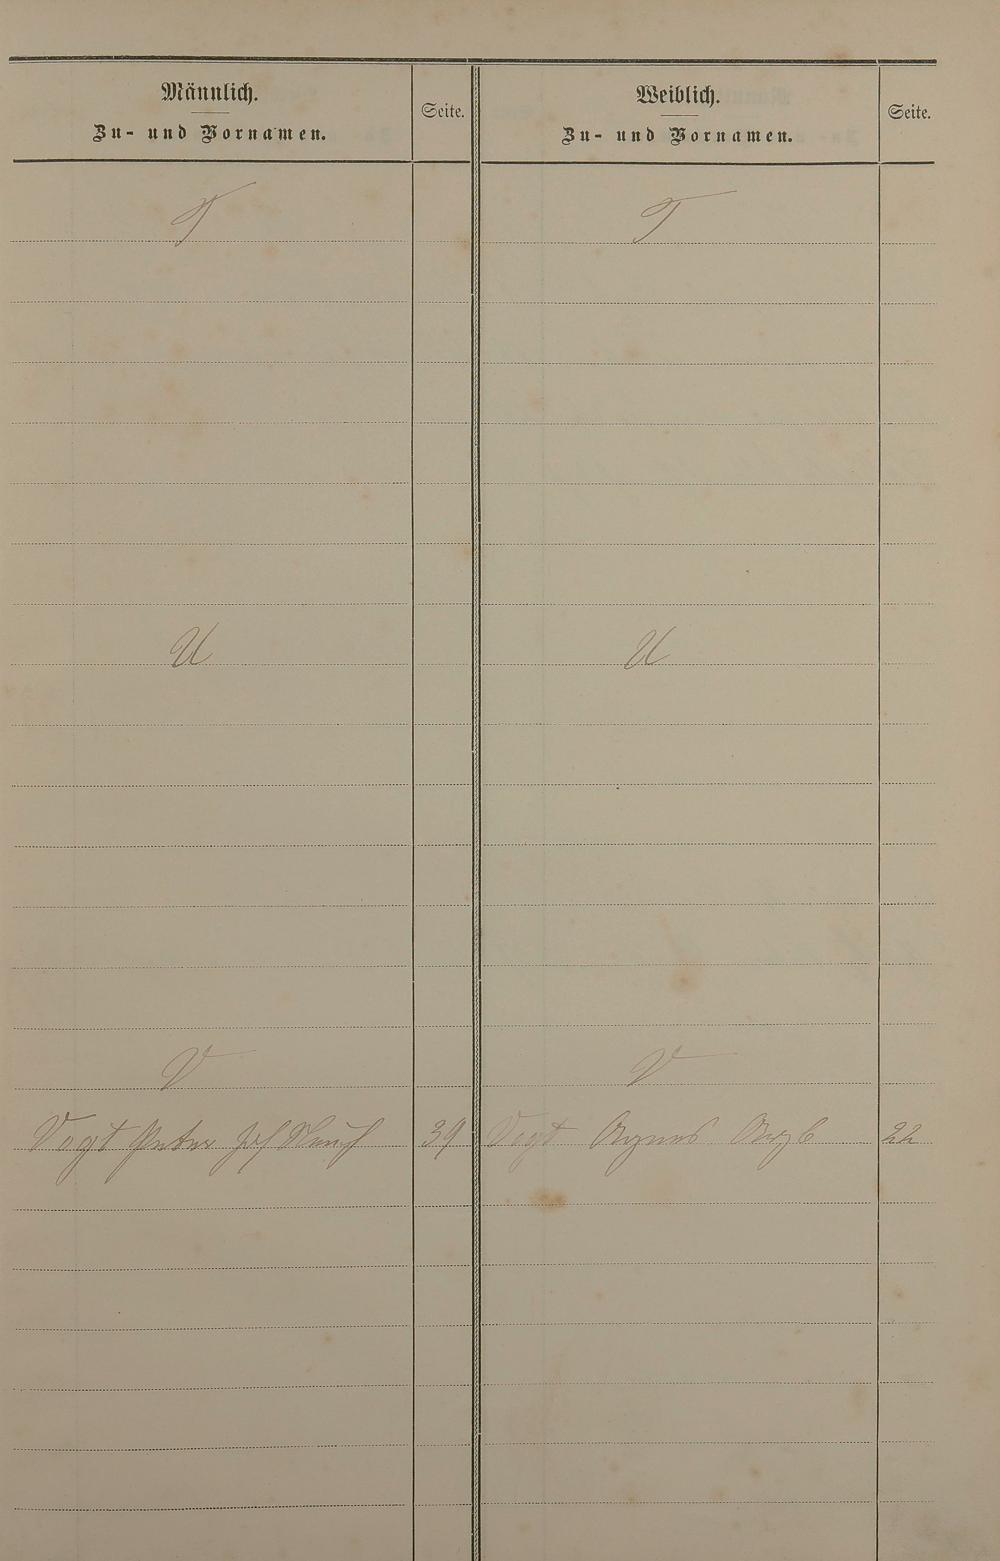 Männlich.
Zu- und Vornamen.
Seite.
Weiblich.
Zu- und Vornamen.
Seite.
T
T
U
U
V
V
Vogt Peter Jos 39
Vogt Agnes 22